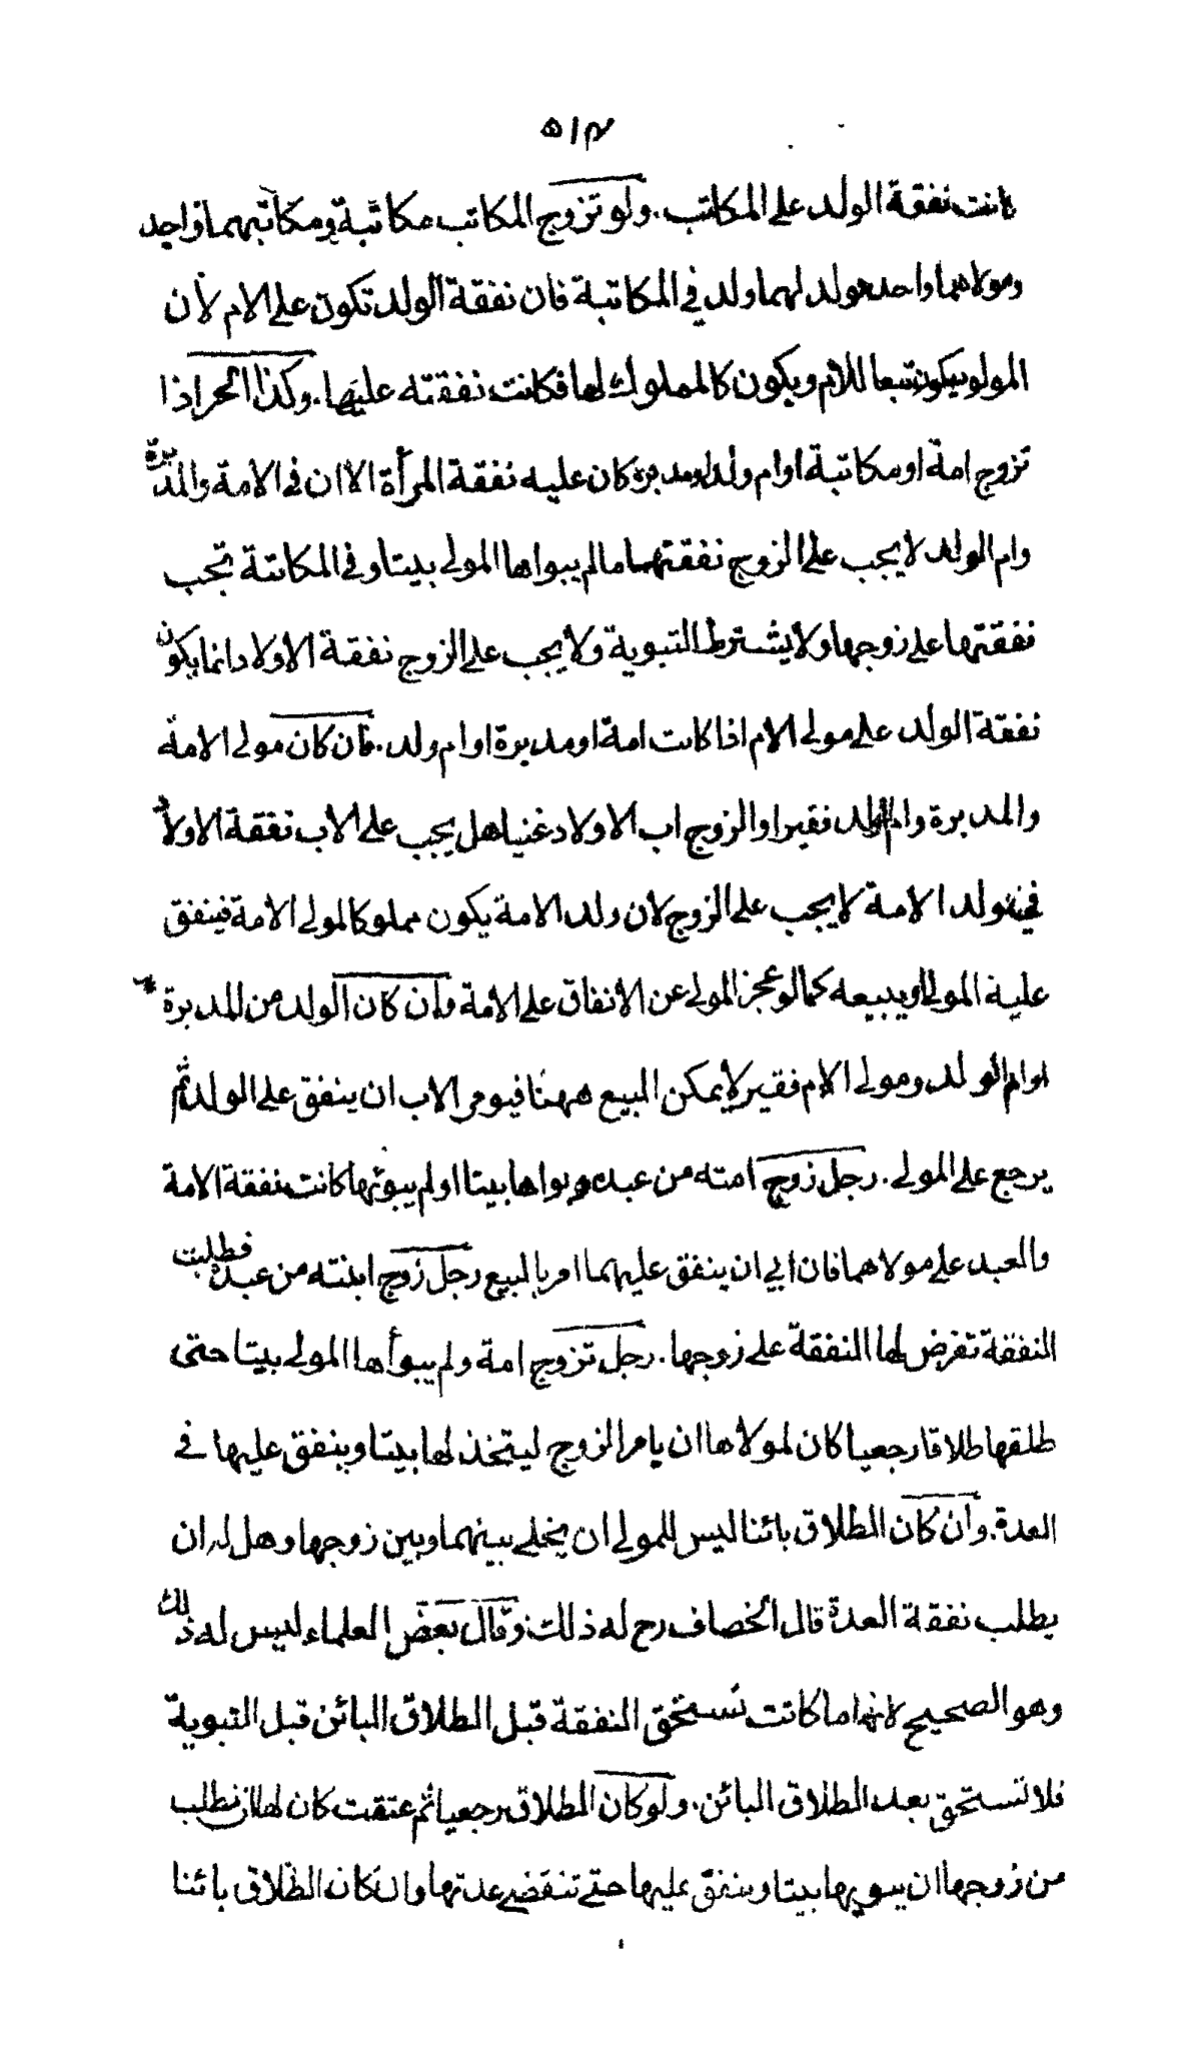 ۵۱۴
كانت نفقة الولد على المكاتب. ولو تزوج المكاتب مكاتبة ومكاتبهما واحد
ومولاهما واحد فولد لهما ولد في المكاتبة فان نفقة الولد تكون على الام لان
المولود يكون تبعا للام ويكون كالمملوك لها فكانت نفقته عليها. وكذا الحر اذا
تزوج امة او مكاتبة او ام ولد او مدبرة كان عليه نفقة المرأة الا ان في الامة والمدبرة
وام الولد لا يجب على الزوج نفقتهما ما لم يبواها المولى بيتا وفي المكاتبة تجب
نفقتها على زوجها ولا يشترط التبوية ولا يجب على الزوج نفقة الاولاد انما يكون
نفقة الولد على مولى الام اذا كانت امة او مدبرة او ام ولد. فان كان مولى الامة
والمدبرة وام الولد فقيرا والزوج اب الاولاد غنيا هل يجب على الاب نفقة الاولاد
ففي ولد الامة لا يجب على الزوج لان ولد الامة يكون مملوكا لمولى الامة فينفق
عليه المولى او يبيعه كما لو عجز المولى عن الانفاق على الامة وان كان الولد من المدبرة
او ام الولد ومولى الام فقير لا يمكن البيع ههنا فيومر الاب ان ينفق على الولد ثم
يرجع على المولى. رجل زوج امته من عبده وبواها بيتا او لم يبوئها كانت نفقة الامة
والعبد على مولاهما فان ابى ان ينفق عليهما امر بالبيع رجل زوج ابنته من عبده فطلبت
النفقة تفرض لها النفقة على زوجها. رجل تزوج امة ولم يبوأها المولى بيتا حتى
طلقها طلاقا رجعيا كان لمولاها ان يامر الزوج ليتخذ لها بيتا وينفق عليها في
العدة. وان كان الطلاق بائنا ليس للمولى ان يخلي بينهما وبين زوجها وهل له ان
يطلب نفقة العدة قال الخصاف رح له ذلك وقال بعض العلماء ليس له ذلك
وهو الصحيح لانها ما كانت تستحق النفقة قبل الطلاق البائن قبل التبوية
فلا تستحق بعد الطلاق البائن. ولو كان الطلاق رجعيا ثم عتقت كان لها ان تطلب
من زوجها ان يبويها بيتا وينفق عليها حتى تنقضي عدتها وان كان الطلاق بائنا